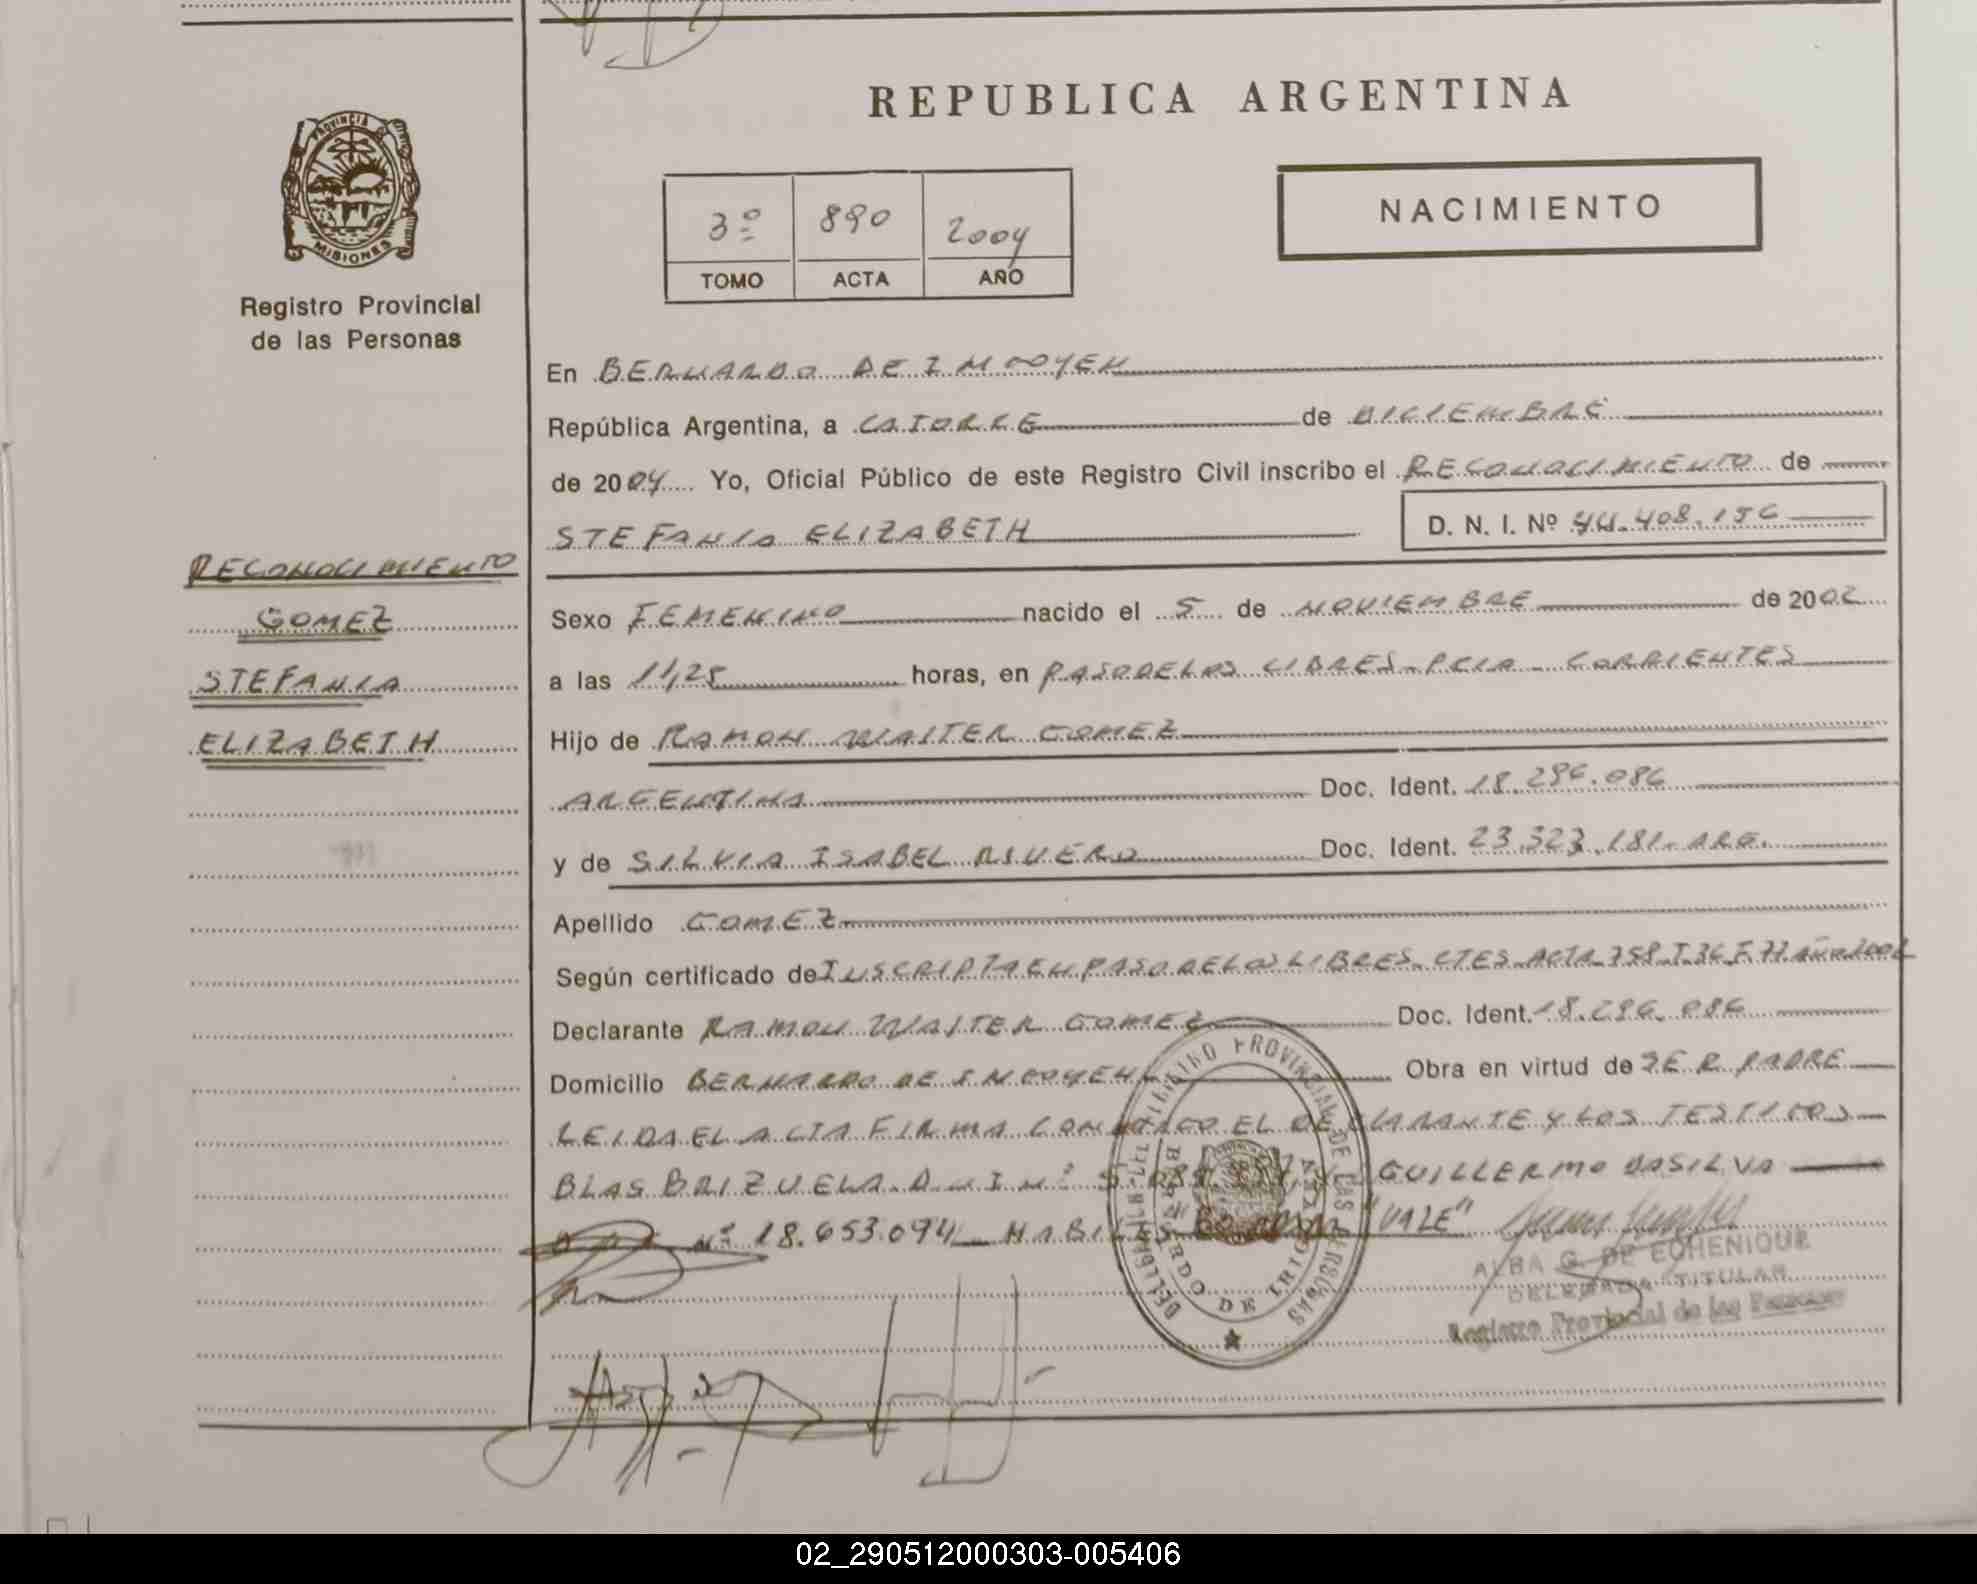 REPUBLICA ARGENTINA
PROVINCIA DE
MISIONES
Registro Provincial
de las Personas
3º 890 2004
TOMO ACTA AÑO
NACIMIENTO
En BERNARDO DE IRIGOYEN
República Argentina, a CATORCE de DICIEMBRE
de 2004 Yo, Oficial Público de este Registro Civil inscribo el RECONOCIMIENTO de
STEFANIA ELIZABETH
D. N. I. Nº 44.408.156
RECONOCIMIENTO
GOMEZ
STEFANIA
ELIZABETH
Sexo FEMENINO nacido el 5 de NOVIEMBRE de 2002
a las 11,25 horas, en PASO DE LOS LIBRES - PCIA - CORRIENTES
Hijo de RAMON WALTER GOMEZ
ARGENTINA Doc. Ident. 18.296.086
y de SILVIA ISABEL RIVERO Doc. Ident. 23.323.181 - ARG.
Apellido GOMEZ
Según certificado de INSCRIPTA EN PASO DE LOS LIBRES - CTES - ACTA 758 - T. 36 F. 77 AÑO 2002
Declarante RAMON WALTER GOMEZ Doc. Ident. 18.296.086
Domicilio BERNARDO DE IRIGOYEN Obra en virtud de SER PADRE
LEIDA EL ACTA FIRMA CONMIGO EL DECLARANTE Y LOS TESTIGOS
BLAS BRIZUELA D N I Nº GUILLERMO DASILVA
Nº 18.653.094 - HABILES "VALE"
ALBA G. DE ECHENIQUE
DELEGADA TITULAR
Registro Provincial de las Personas
REGISTRO PROVINCIAL DE LAS PERSONAS
BERNARDO DE IRIGOYEN
02_290512000303-005406